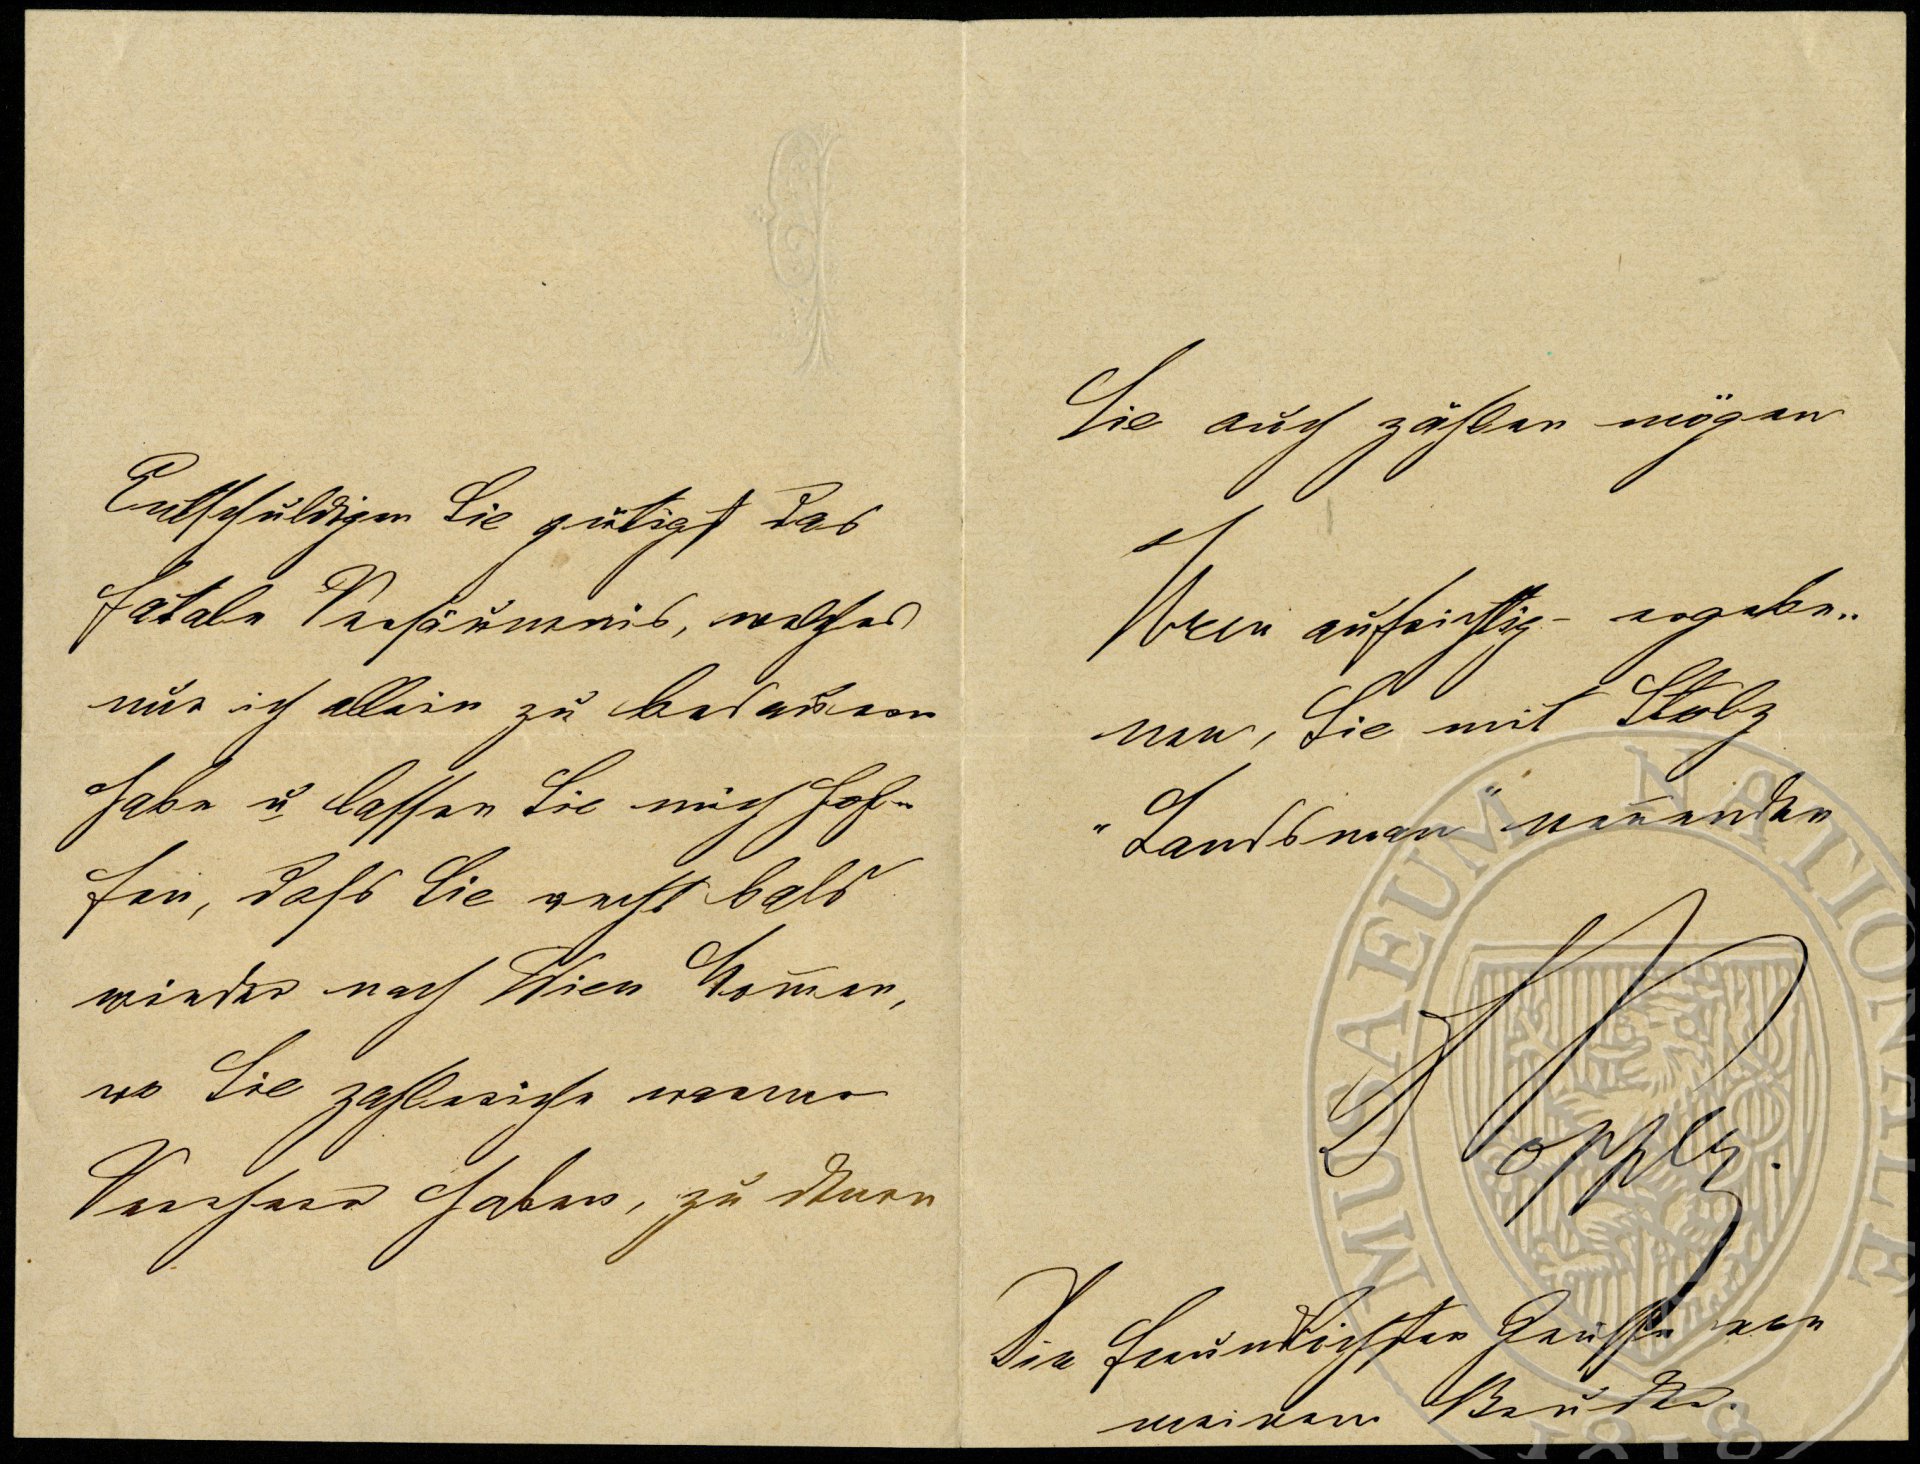 Entschuldigen Sie gütigst das
fatale Versäumnis, welches
nur ich allein zu bedauern
habe u lassen Sie mich hof-
fen, daß Sie recht bald
wieder nach Wien kom̅en,
wo Sie zahlreiche warme
Verehrer haben, zu denen
Sie auch zählen mögen
Ihren aufrichtig- ergebe-
nen, Sie mit Stolz
"Landsman" nen̅enden
D Popper.
Die freundlichsten Grüße von
meinem Bruder.
MUSAEUM NATIONALE
1818